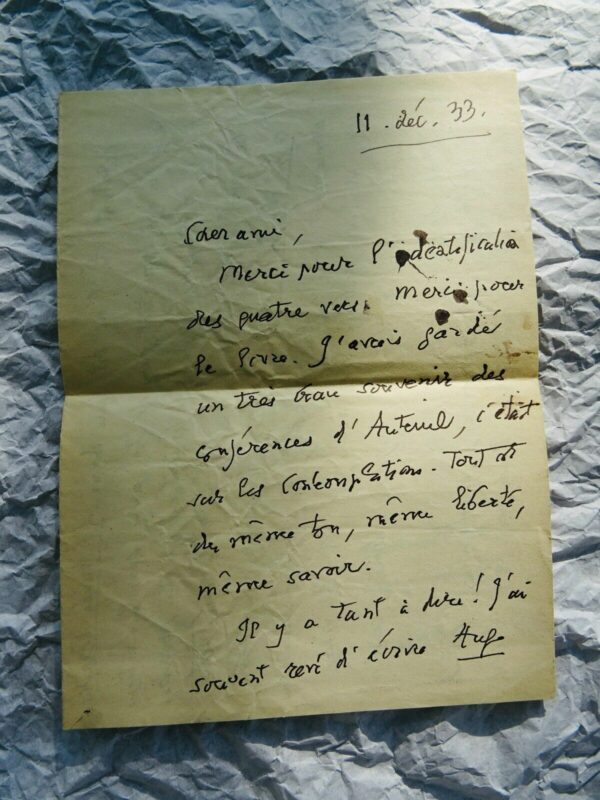 11 . déc . 33.
Cher ami,
Merci pour l'identification
des quatre vers. Merci pour
le livre. J'avais gardé
un très beau souvenir des
conférences d'Auteuil, c'était
sur les Contemplations. Tout est
du même ton, même liberté,
même savoir.
Il y a tant à dire! J'ai
souvent rêvé d'écrire